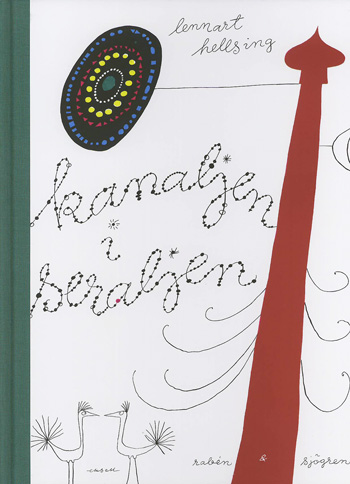 lennart
hellsing
kanaljen
i
seraljen
rabén & sjögren